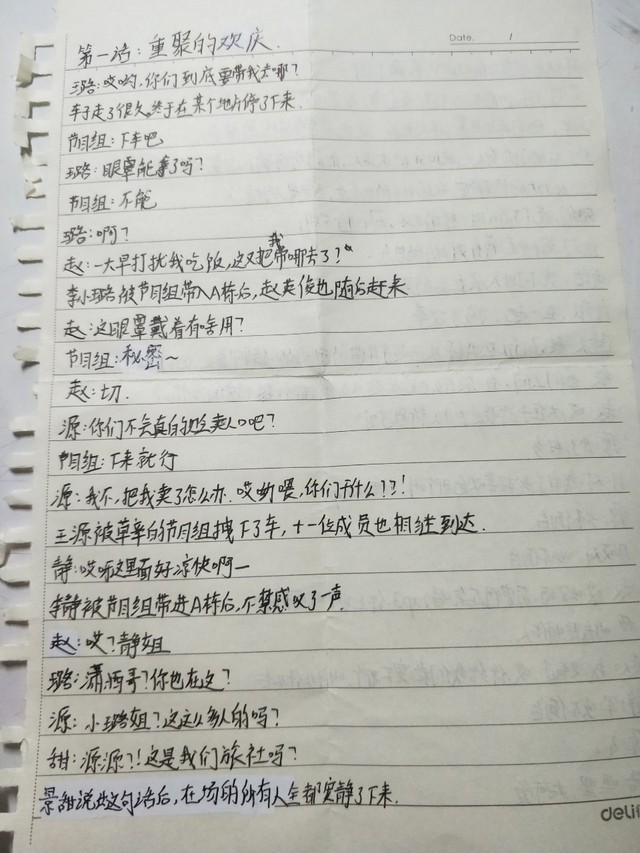 第一话:重聚的欢庆.
Date. /
璐:哎哟,你们到底要带我去哪?
车子走了很久,终于在某个地方停了下来.
节目组:下车吧
璐:眼罩能拿了吗?
节目组:不能
璐:啊?
赵:一大早打扰我吃饭,这又把我带哪去了?
李小璐被节目组带入A栋后,赵英俊也随后赶来
赵:这眼罩戴着有啥用?
节目组:秘密~
赵:切.
源:你们不会真的吧?
节目组:下来就行
源:我不,把我卖了怎么办.哎呦喂,你们干什么??!
王源被草率的节目组拽下了车,十一位成员也相继到达.
静:哎呀这里面好凉快啊一
李静被节目组带进A栋后,不禁感叹了一声.
赵:哎?静姐
璐:潇洒哥?你也在这?
源:小璐姐?这这么多人的吗?
甜:源源?!这是我们旅社吗?
景甜说出这句话后,在场的所有人全都安静了下来.
deli